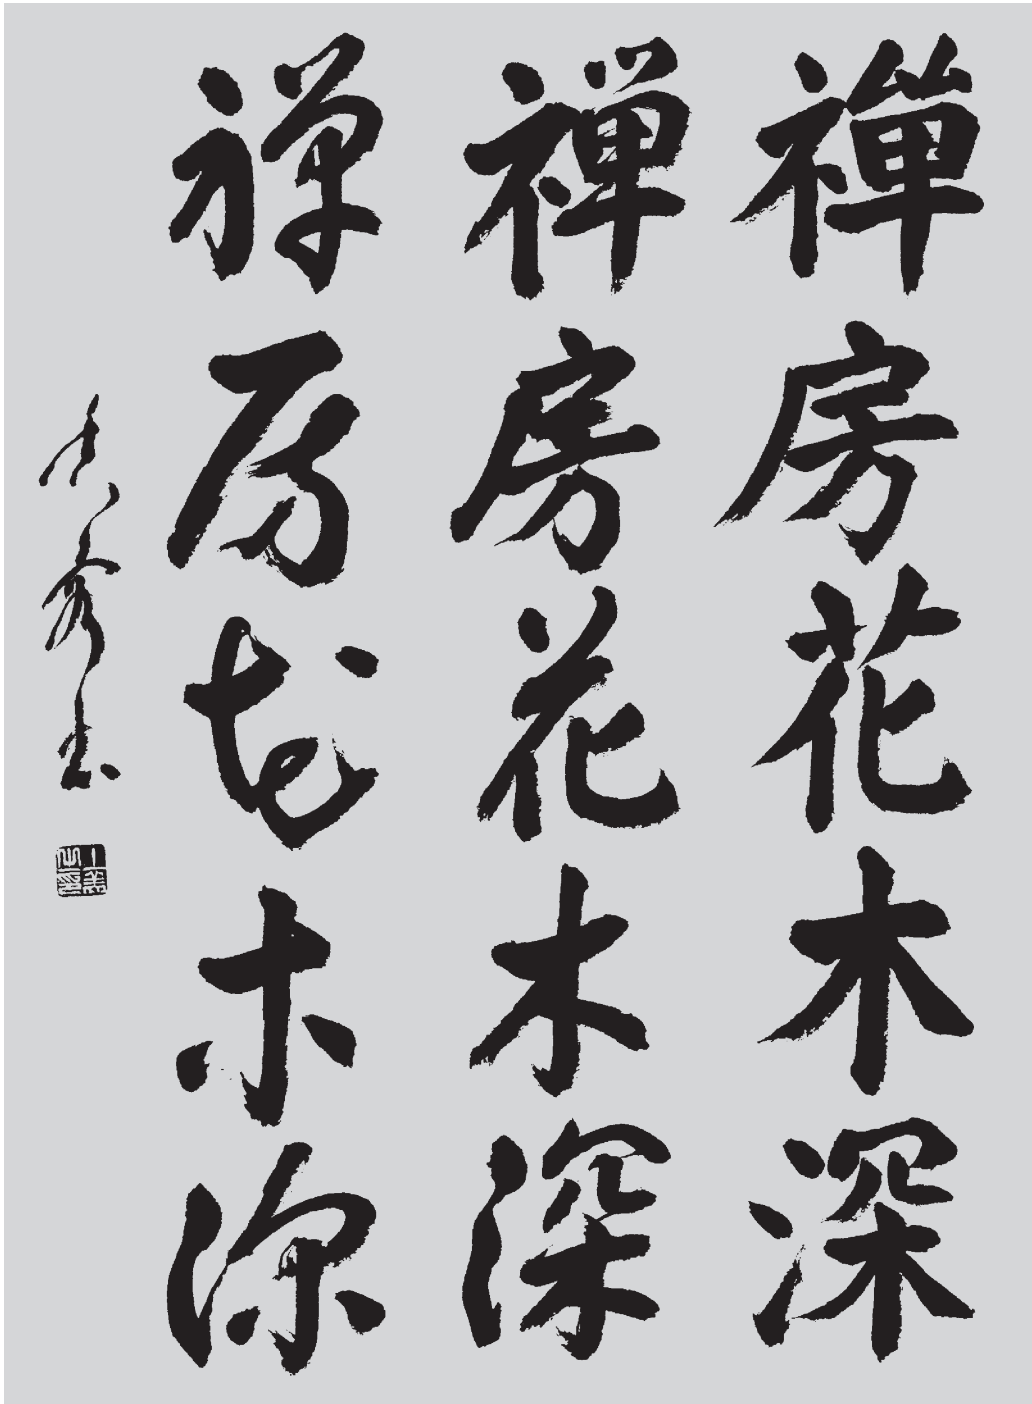 禪房花木深
禅房花木深
禅房花木深